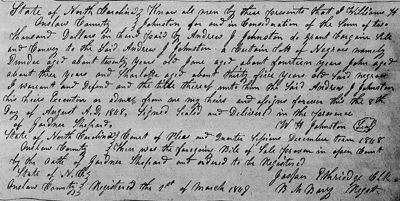 State of North Carolina } Know all men by these presents that I William H
Onslow County } Johnston for and in Consideration of the Sum of two
thousand Dollars in hand paid by Andrew J Johnston do grant bargain Sell
and Convey to the Said Andrew J Johnston a Certain Lott of Negroes namely
Dundee aged about twenty years old Jane aged about fourteen years John aged
about three years and Sharlotte aged about thirty five years old Said negroes
I warrant and Defend and the title thereof unto him the Said Andrew J Johnston
his heirs Executors or admrs from me my heirs and assigns forever this the 8th
Day of August A.D. 1848. Signed Sealed and Delivered in the presence
of Gardner Shepard W H Johnston Seal
State of North Carolina } Court of Pleas and Quarter Sessions December Term 1848
Onslow County } Then was the foregoing Bill of Sale proven in open Court
by the Oath of Gardner Shepard and ordered to be Registered
State of N.C. } Jasper Etheridge Clk
Onslow County } Registered the of March 1849 Regst.